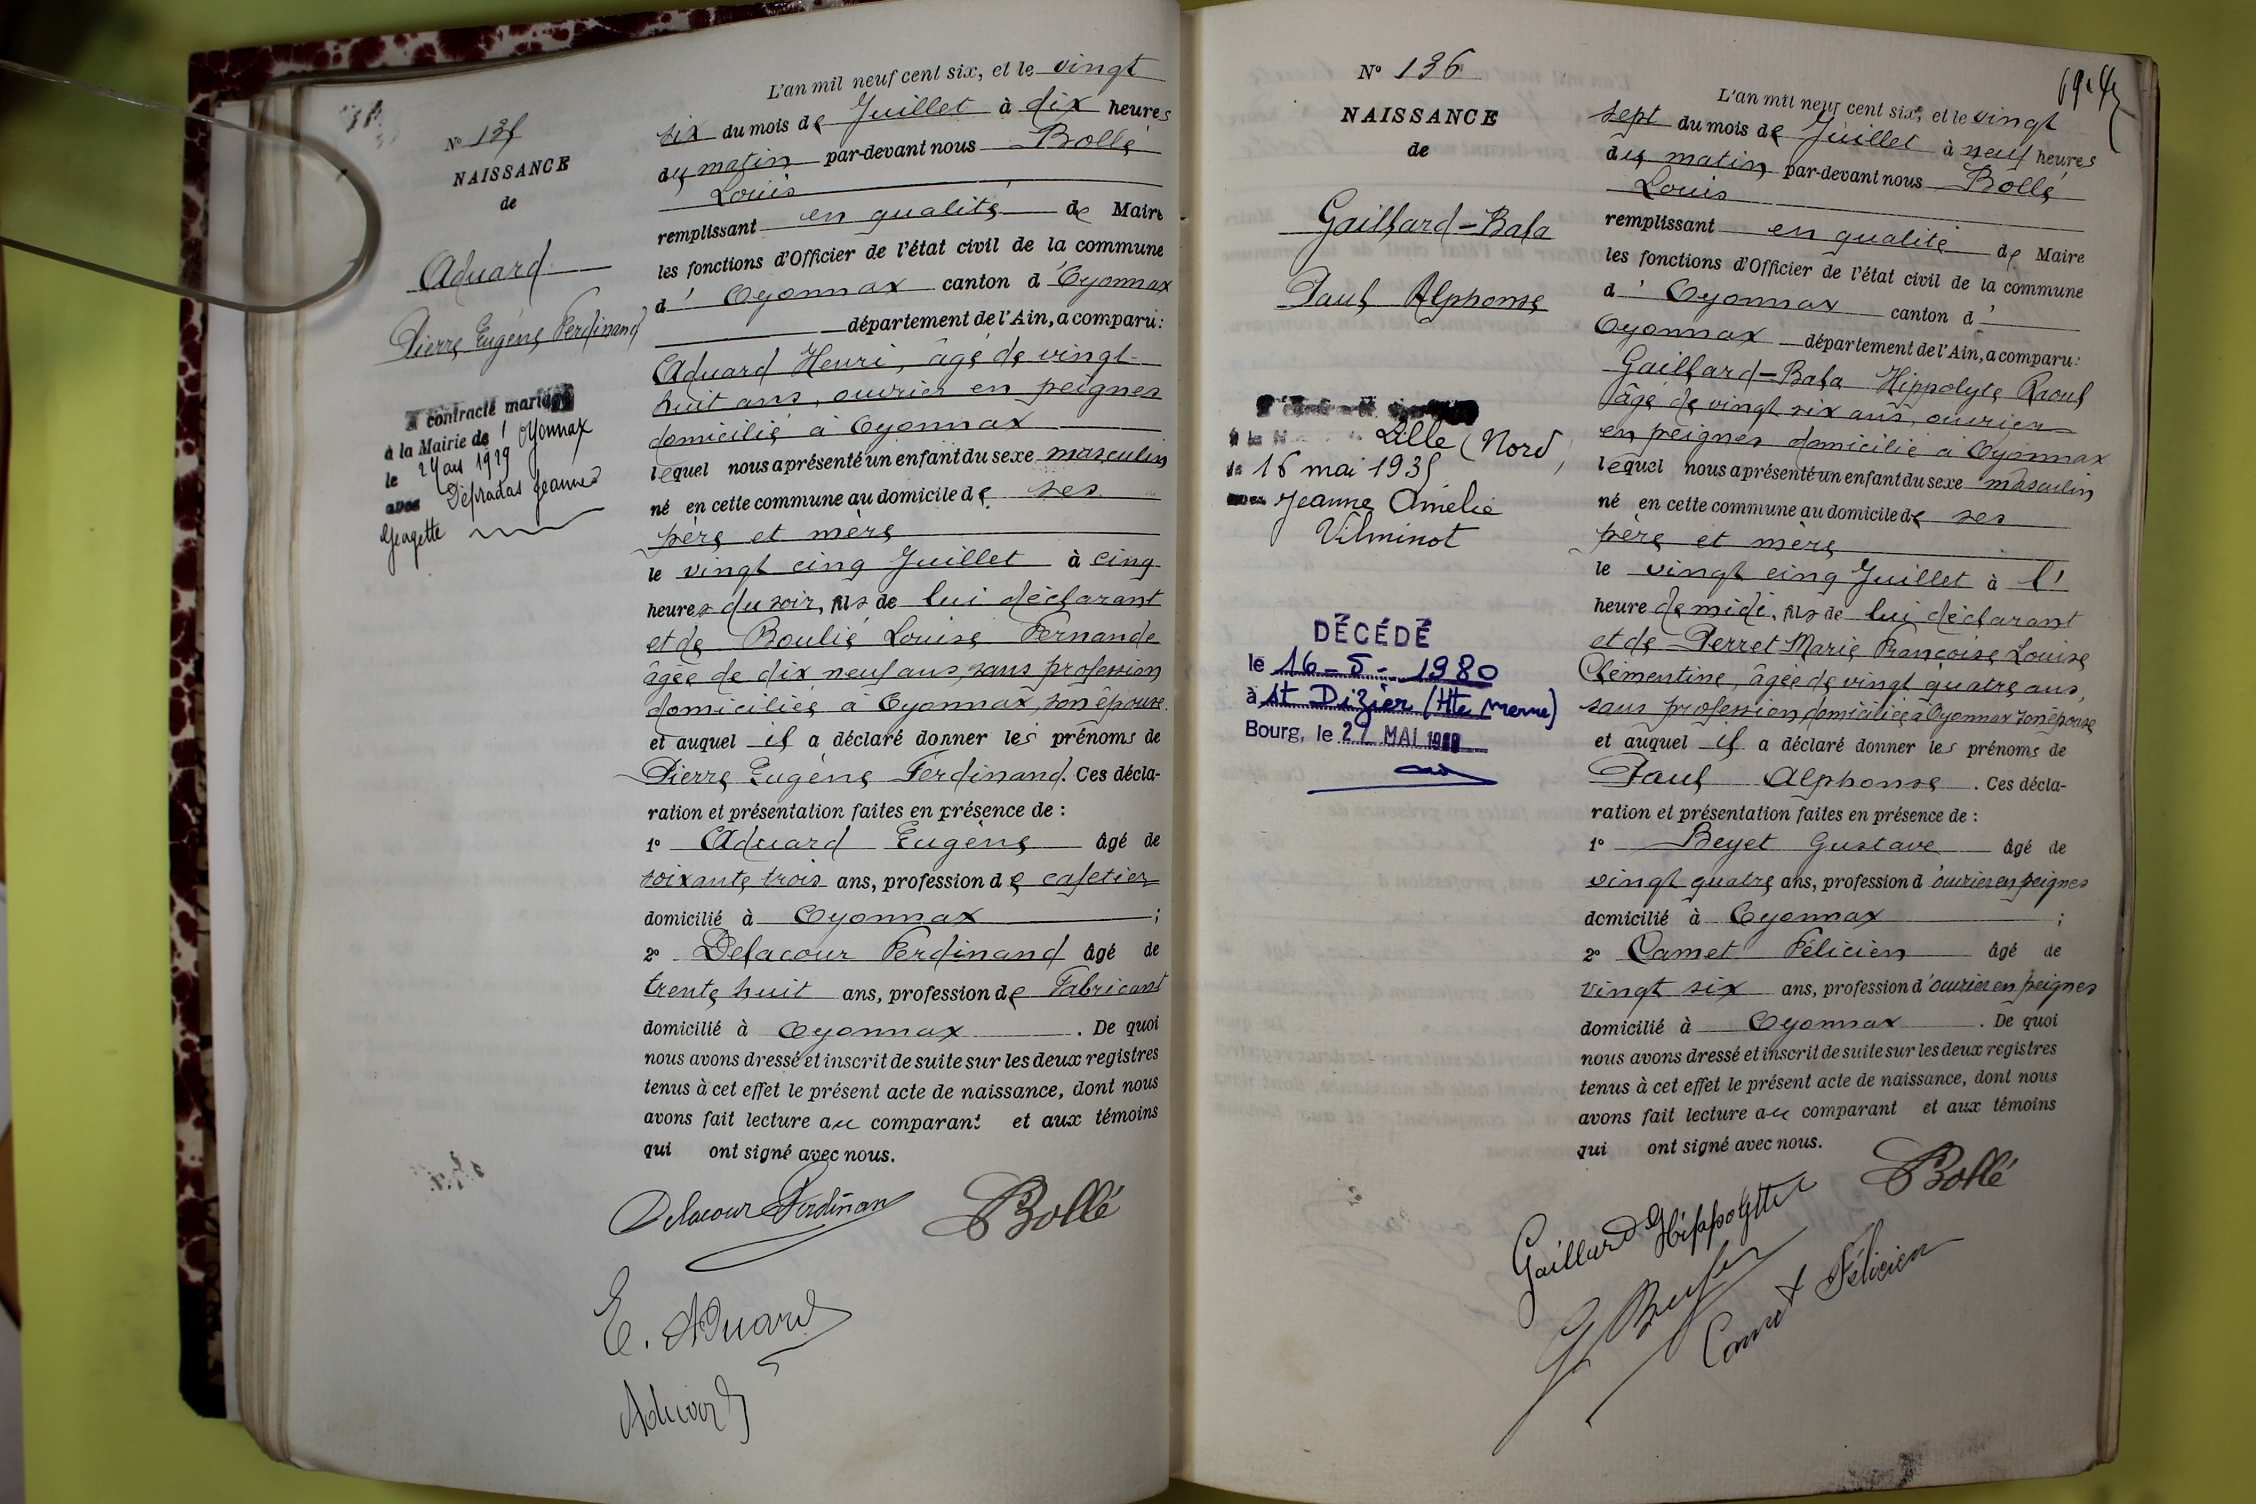 N° 135
NAISSANCE
de
Aduard
Pierre Eugène Ferdinand
A contracté mariage
à la Mairie de Oyonnax
le 1929
avec Jeanne
Georgette
L'an mil neuf cent six, et le vingt
six du mois de Juillet à dix heures
du matin par-devant nous Bollé
Louis
remplissant en qualité de Maire
les fonctions d'Officier de l'état civil de la commune
d' Oyonnax canton d'Oyonnax
département de l'Ain, a comparu:
Aduard Henri, âgé de vingt
huit ans, ouvrier en peignes
domicilié à Oyonnax
lequel nous a présenté un enfant du sexe masculin
né en cette commune au domicile de ses
père et mère
le vingt cinq Juillet à cinq
heures du soir, fils de lui déclarant
et de Boulié Louise Fernande
âgée de dix neuf ans, sans profession
domiciliée à Oyonnax, son épouse.
et auquel il a déclaré donner les prénoms de
Pierre Eugène Ferdinand. Ces décla-
ration et présentation faites en présence de :
1° Aduard Eugène âgé de
soixante trois ans, profession de cafetier
domicilié à Oyonnax ;
2° Delacour Ferdinand âgé de
trente huit ans, profession de Fabricant
domicilié à Oyonnax . De quoi
nous avons dressé et inscrit de suite sur les deux registres
tenus à cet effet le présent acte de naissance, dont nous
avons fait lecture au comparant et aux témoins
qui ont signé avec nous.
Delacour Ferdinan Bollé
E. Aduard
Aduard
N° 136
NAISSANCE
de
Gaillard-Bala
Paul Alphonse
Lille (Nord)
le 16 mai 1935
avec Jeanne Amélie
Vilminot
DÉCÉDÉ
le 16-5-1980
à St Dizier (Hte Marne)
Bourg, le 27 MAI
L'an mil neuf cent six, et le vingt
sept du mois de Juillet à neuf heures
du matin par-devant nous Bollé
Louis
remplissant en qualité de Maire
les fonctions d'Officier de l'état civil de la commune
d' Oyonnax canton d'
Oyonnax département de l'Ain, a comparu:
Gaillard-Bala Hippolyte Raoul
âgé de vingt six ans, ouvrier
en peignes domicilié à Oyonnax
lequel nous a présenté un enfant du sexe masculin
né en cette commune au domicile de ses
père et mère
le vingt cinq Juillet à l'
heure de midi, fils de lui déclarant
et de Perret Marie Françoise Louise
Clémentine, âgée de vingt quatre ans,
sans profession, domiciliée à Oyonnax son épouse
et auquel il a déclaré donner les prénoms de
Paul Alphonse . Ces décla-
ration et présentation faites en présence de :
1° Beyet Gustave âgé de
vingt quatre ans, profession d'ouvrier en peignes
domicilié à Oyonnax ;
2° Camet Félicien âgé de
vingt six ans, profession d'ouvrier en peignes
domicilié à Oyonnax . De quoi
nous avons dressé et inscrit de suite sur les deux registres
tenus à cet effet le présent acte de naissance, dont nous
avons fait lecture au comparant et aux témoins
qui ont signé avec nous.
Gaillard Hippolytte Bollé
Camet Félicien